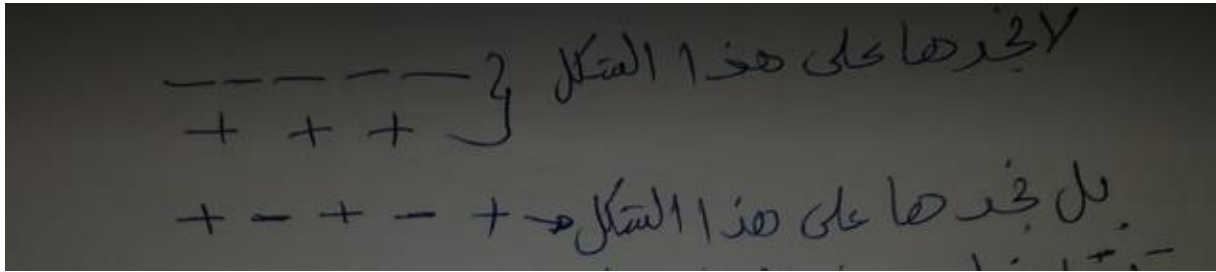 لا نجدها على هذا الشكل } — — — — —
+ + +
بل نجدها على هذا الشكل → + - + - +